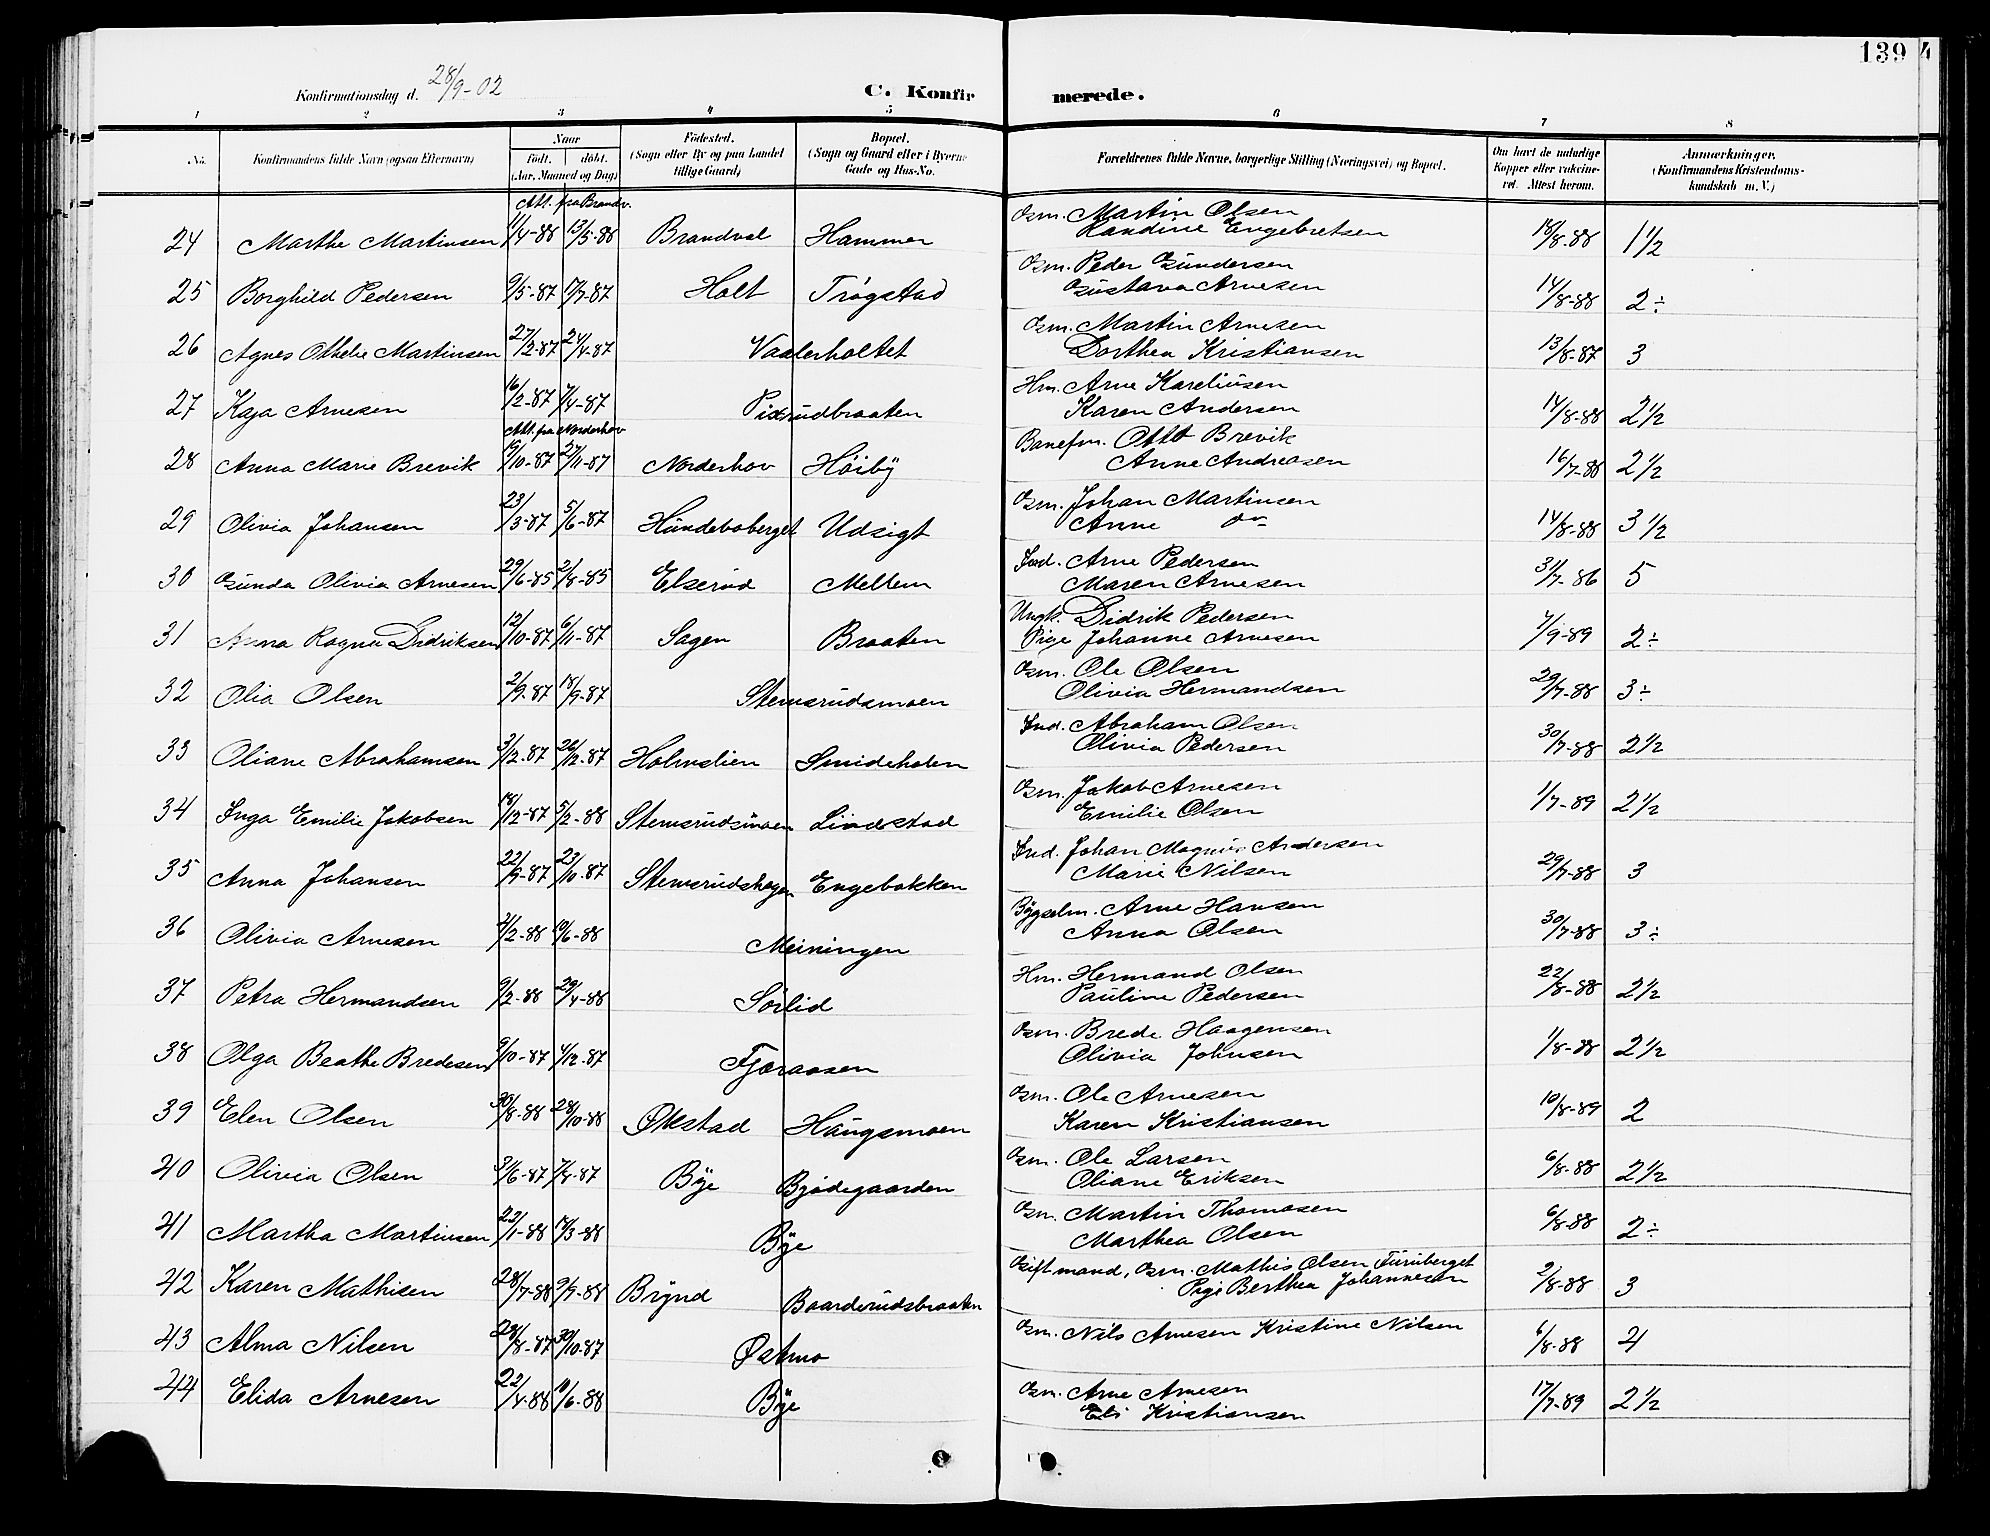 139
4
Konfirmationsdag d. 28/9-02
C. Konfirmerede.
1 2 3 4 5 6 7 8
No.
Konfirmandens fulde Navn (ogsaa Efternavn)
Naar
födt. döbt.
(Aar, Maaned og Dag)
Födested.
(Sogn eller By og paa Landet
tillige Gaard)
Bopæl.
(Sogn og Gaard eller i Byerne
Gade og Hus-No.
Forældrenes fulde Navne, borgerlige Stilling (Næringsvei) og Bopæl.
Om havt de naturlige
Kopper eller vakcine-
ret. Attest herom.
Anmærkninger.
(Konfirmandens Kristendoms-
kundskab m. V.)
Att. fra Brandv.
24 Marthe Martinsen 11/4-88 13/5-88 Brandval Hammer Gm. Martin Olsen 18/8-88 1 1/2
Randine Engebretsen
25 Borghild Pedersen 9/5-87 17/7-87 Holt Trøgstad Gm. Peder Gundersen 14/8-88 2÷
Gustava Arnesen
26 Agnes Othelie Martinsen 27/2-87 24/4-87 Vaalerholtet Gm. Martin Arnesen 13/8-87 3
Dorthea Kristiansen
27 Kaja Arnesen 16/2-87 7/4-87 Pixrudbraaten Hm. Arne Kareliusen 14/8-88 2 1/2
Karen Andersen
Att. fra Norderhov
28 Anna Marie Brevik 19/10-87 27/11-87 Norderhov Høiby Banefm. Otto Brevik 16/7-88 2 1/2
Anne Andreasen
29 Olivia Johansen 23/3-87 5/6-87 Hundeboberget Udsigt Gm. Johan Martinsen 14/8-88 3 1/2
Anne do
30 Gunda Olivia Arnesen 29/6-85 2/8-85 Elserud Mellem Ind. Arne Pedersen 31/7-86 5
Maren Arnesen
31 Anna Ragna Didriksen 12/10-87 6/11-87 Sagen Braaten Ungk. Didrik Pedersen 7/9-89 2÷
Pige Johanne Arnesen
32 Olia Olsen 2/9-87 18/9-87 Stemsrudsmoen Gm. Ole Olsen 29/7-88 3÷
Olivia Hermandsen
33 Oliane Abrahamsen 3/12-87 26/12-87 Holmslien Smideholen Ind. Abraham Olsen 30/7-88 2 1/2
Olivia Pedersen
34 Inga Emilie Jakobsen 18/12-87 5/2-88 Stemsrudsmoen Lindstad Gm. Jakob Arnesen 1/7-89 2 1/2
Emilie Olsen
35 Anna Johansen 22/9-87 23/10-87 Stemsrudshagen Engebakken Ind. Johan Magnus Andersen 29/7-88 3
Marie Nilsen
36 Olivia Arnesen 4/2-88 10/6-88 Meiningen Bygselm. Arne Hansen 30/7-88 3÷
Anna Olsen
37 Petra Hermandsen 9/2-88 29/4-88 Sørlid Hm. Hermand Olsen 22/8-88 2 1/2
Pauline Pedersen
38 Olga Beathe Bredesen 9/10-87 4/12-87 Fjæraasen Gm. Brede Haagensen 1/8-88 2 1/2
Olivia Johnsen
39 Elen Olsen 30/8-88 28/10-88 Økstad Haugsmoen Gm. Ole Arnesen 10/8-89 2
Karen Kristiansen
40 Olivia Olsen Bye Bjødegaarden Gm. Ole Larsen 6/8-88 2 1/2
Oliane Eriksen
41 Martha Martinsen 23/1-88 18/3-88 Bye Gm. Martin Thomasen 6/8-88 2÷
Marthea Olsen
42 Karen Mathisen 28/7-88 9/9-88 Brynd Baarderudsbraaten Giftmand, Gm. Mathis Olsen Furuberget 2/8-88 3
Pige Berthea Johannesen
43 Alma Nilsen 28/8-87 30/10-87 Østmo Gm. Nils Arnesen Kristine Nilsen 6/8-88 4
44 Elida Arnesen 22/4-88 10/6-88 Bye Gm. Arne Arnesen 17/7-89 2 1/2
Eli Kristiansen